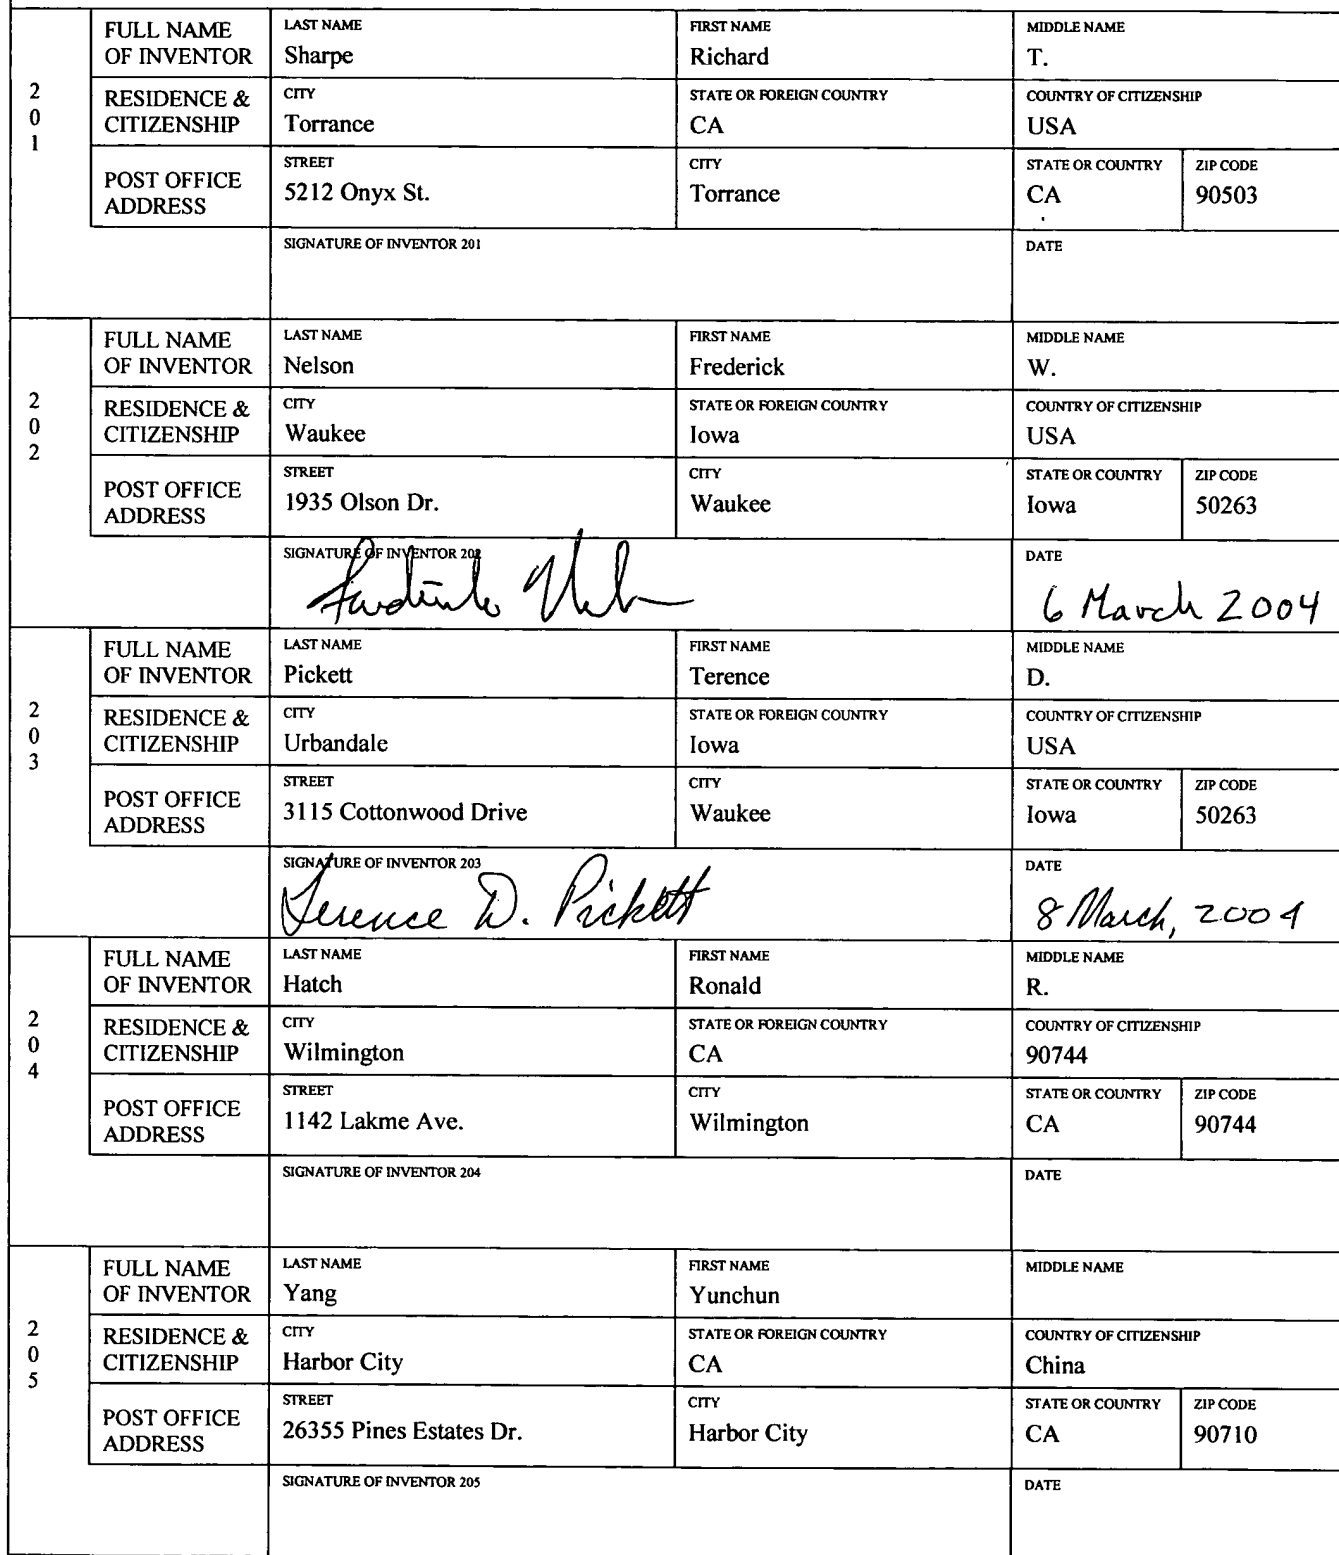 FULL NAME OF INVENTOR LAST NAME Sharpe FIRST NAME Richard MIDDLE NAME T.
201 RESIDENCE & CITIZENSHIP CITY Torrance STATE OR FOREIGN COUNTRY CA COUNTRY OF CITIZENSHIP USA
POST OFFICE ADDRESS STREET 5212 Onyx St. CITY Torrance STATE OR COUNTRY CA ZIP CODE 90503
SIGNATURE OF INVENTOR 201 DATE
FULL NAME OF INVENTOR LAST NAME Nelson FIRST NAME Frederick MIDDLE NAME W.
202 RESIDENCE & CITIZENSHIP CITY Waukee STATE OR FOREIGN COUNTRY Iowa COUNTRY OF CITIZENSHIP USA
POST OFFICE ADDRESS STREET 1935 Olson Dr. CITY Waukee STATE OR COUNTRY Iowa ZIP CODE 50263
SIGNATURE OF INVENTOR 202 DATE 6 March 2004
FULL NAME OF INVENTOR LAST NAME Pickett FIRST NAME Terence MIDDLE NAME D.
203 RESIDENCE & CITIZENSHIP CITY Urbandale STATE OR FOREIGN COUNTRY Iowa COUNTRY OF CITIZENSHIP USA
POST OFFICE ADDRESS STREET 3115 Cottonwood Drive CITY Waukee STATE OR COUNTRY Iowa ZIP CODE 50263
SIGNATURE OF INVENTOR 203 Terence D. Pickett DATE 8 March, 2004
FULL NAME OF INVENTOR LAST NAME Hatch FIRST NAME Ronald MIDDLE NAME R.
204 RESIDENCE & CITIZENSHIP CITY Wilmington STATE OR FOREIGN COUNTRY CA COUNTRY OF CITIZENSHIP 90744
POST OFFICE ADDRESS STREET 1142 Lakme Ave. CITY Wilmington STATE OR COUNTRY CA ZIP CODE 90744
SIGNATURE OF INVENTOR 204 DATE
FULL NAME OF INVENTOR LAST NAME Yang FIRST NAME Yunchun MIDDLE NAME
205 RESIDENCE & CITIZENSHIP CITY Harbor City STATE OR FOREIGN COUNTRY CA COUNTRY OF CITIZENSHIP China
POST OFFICE ADDRESS STREET 26355 Pines Estates Dr. CITY Harbor City STATE OR COUNTRY CA ZIP CODE 90710
SIGNATURE OF INVENTOR 205 DATE